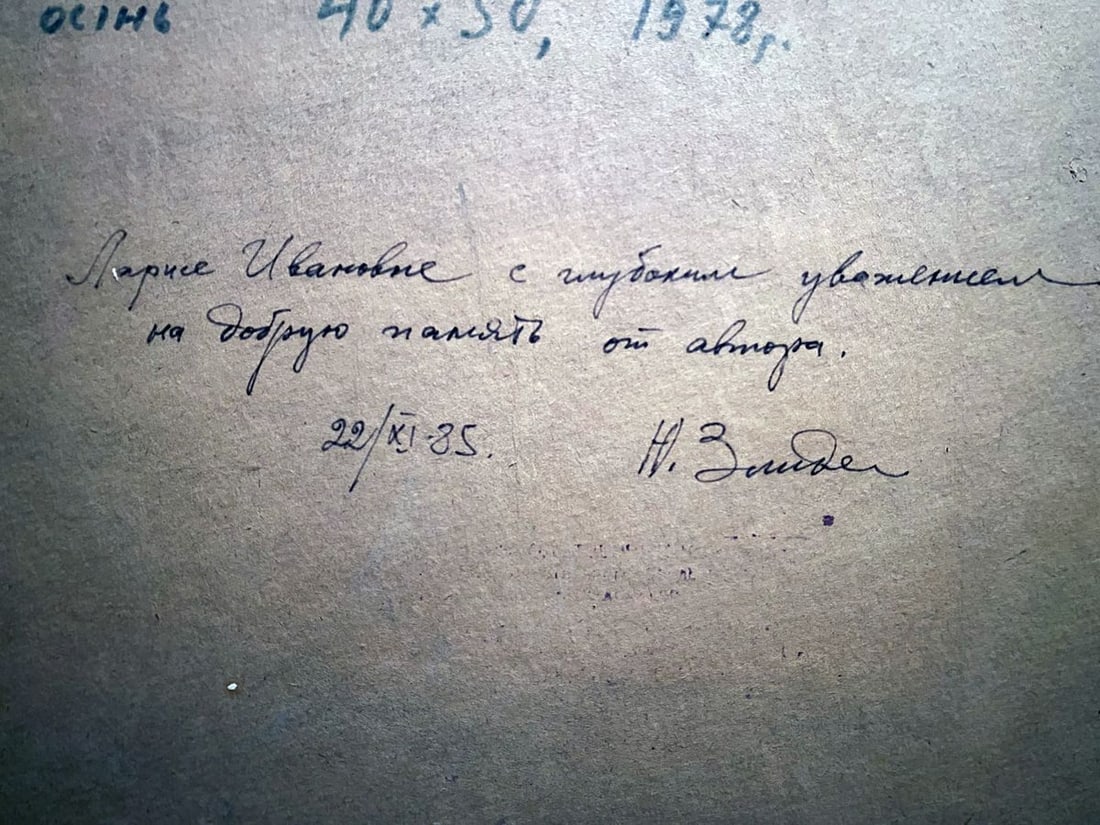 осінь 40 x 50, 1978 р.
Ларисе Ивановне с глубоким уважением
на добрую память от автора.
22/XI-85.